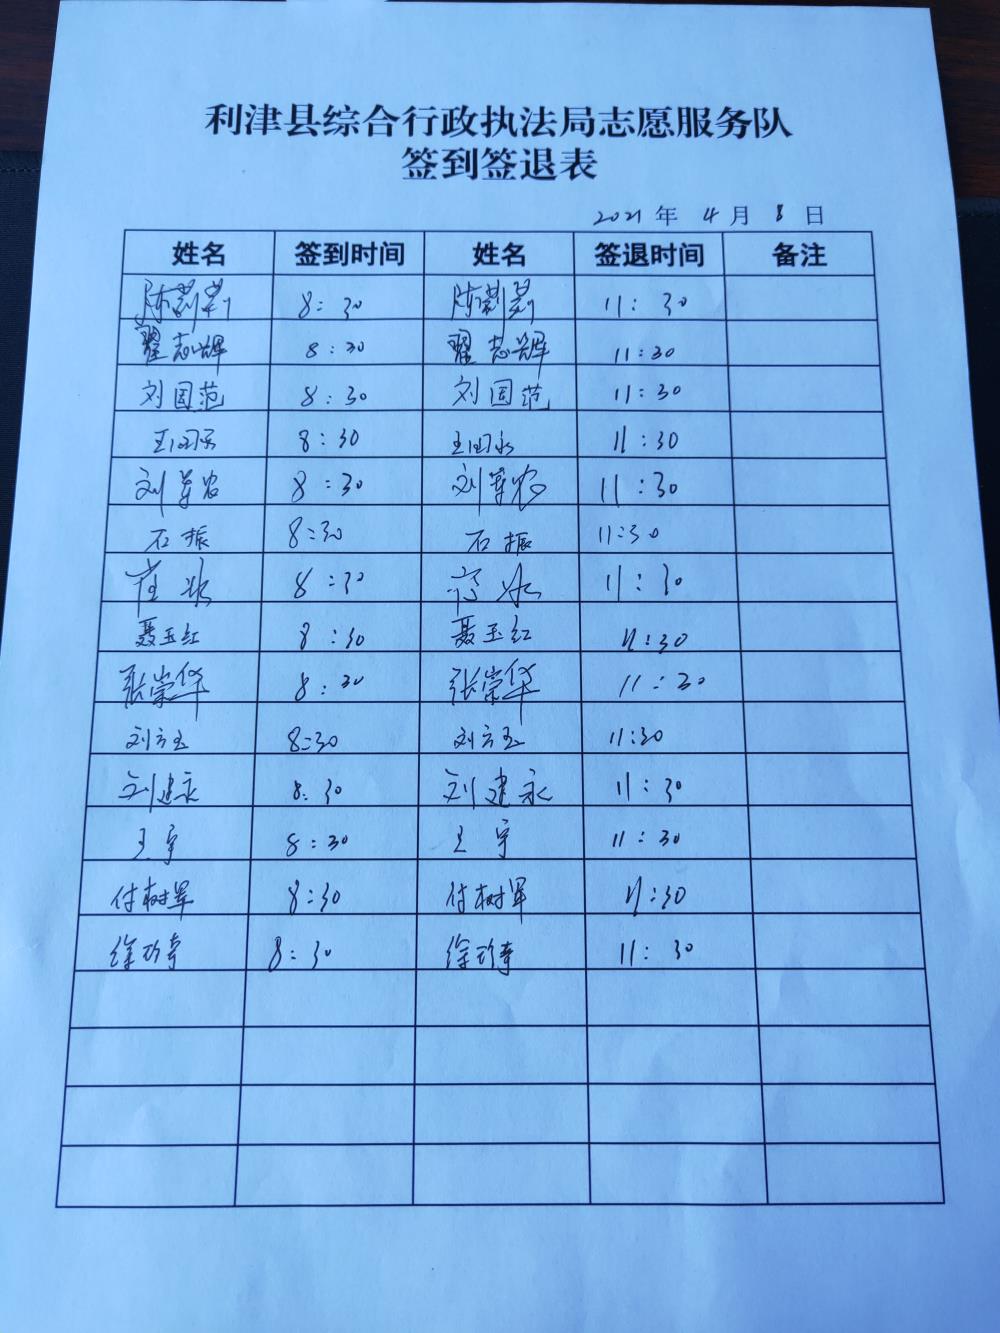 利津县综合行政执法局志愿服务队
签到签退表
2021年 4月 8日
姓名 签到时间 姓名 签退时间 备注
陈莉莉 8:30 陈莉莉 11:30
翟志辉 8:30 翟志辉 11:30
刘国范 8:30 刘国范 11:30
王国永 8:30 王国永 11:30
刘 农 8:30 刘 农 11:30
石振 8:30 石振 11:30
8:30 11:30
聂玉红 8:30 聂玉红 11:30
张崇华 8:30 张崇华 11:30
刘方玉 8:30 刘方玉 11:30
刘建永 8:30 刘建永 11:30
王宇 8:30 王宇 11:30
付树军 8:30 付树军 11:30
徐 8:30 徐 11:30